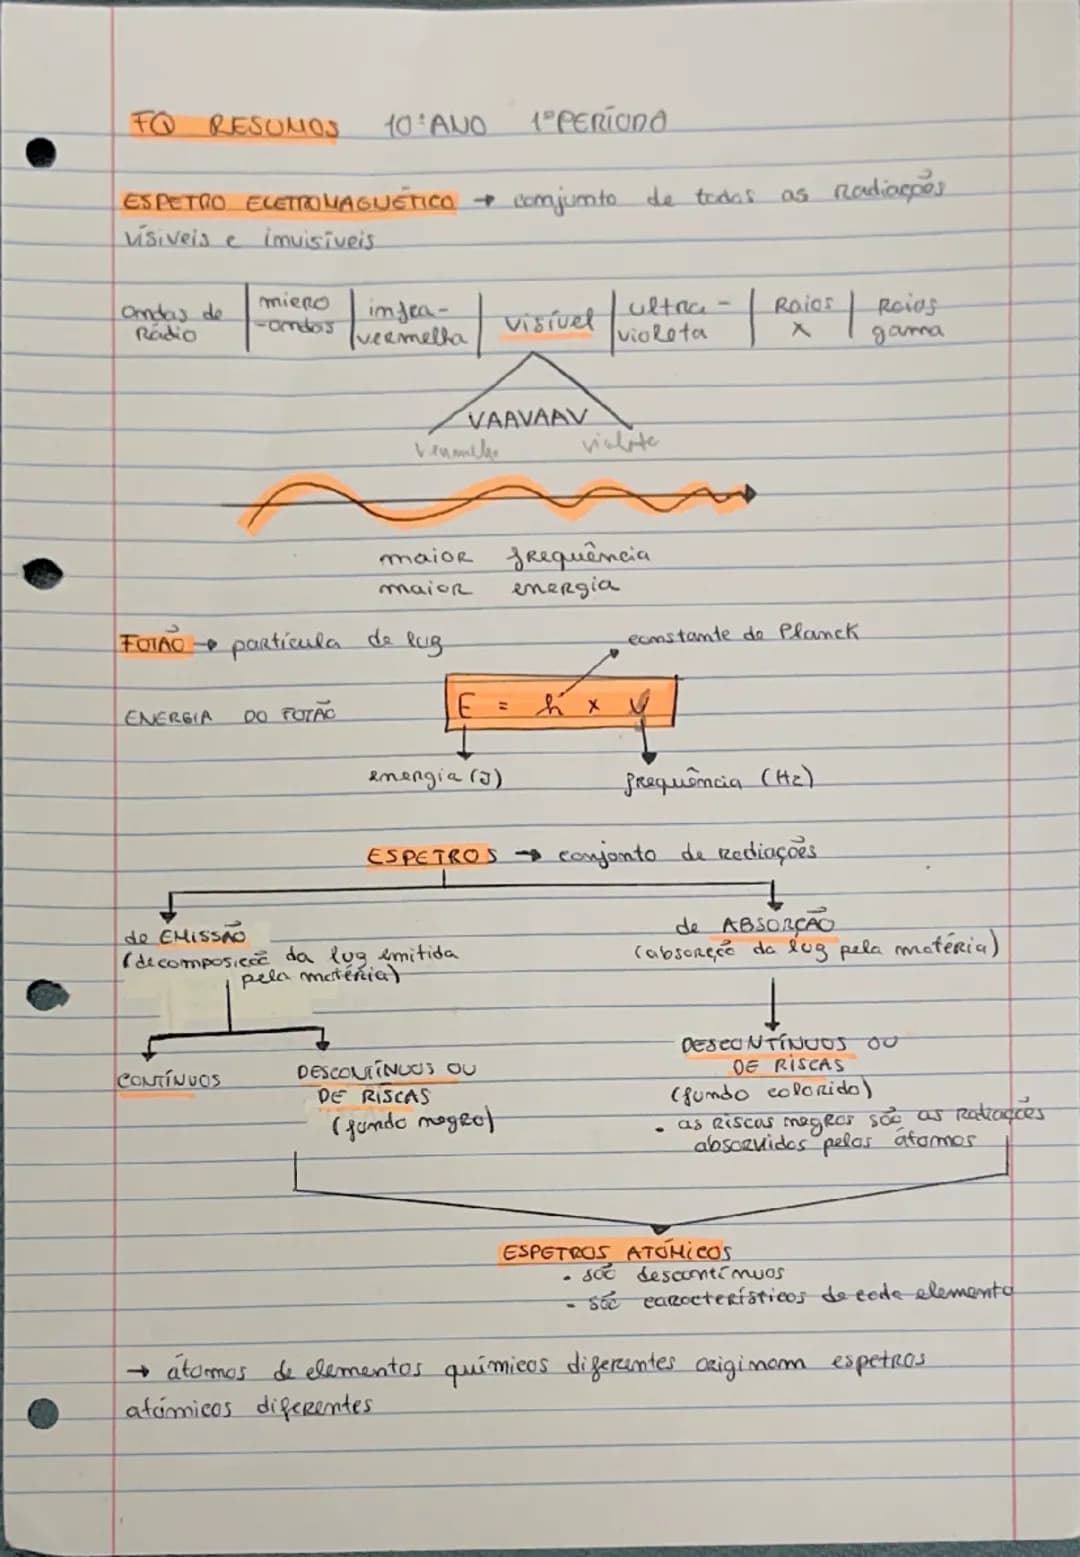 FQ RESUMOS 10ºANO 1ºPERÍODO
ESPETRO ELETROMAGNÉTICO → conjunto de todas as radiações
vísiveis e invisíveis
ondas de Rádio | micro-ondas | infra-vermelha | visível | ultra-violeta | Raios X | Raios gama
VAAVAAV
vermelho violeta
maior frequência
maior energia
FOTÃO → partícula de luz
constante de Planck
ENERGIA DO FOTÃO E = h x ν
energia (J) frequência (Hz)
ESPETROS → conjonto de radiações
de EMISSÃO
(decomposição da luz emitida
pela matéria)
de ABSORÇÃO
(absorção da luz pela matéria)
CONTÍNUOS
DESCONTÍNUOS OU
DE RISCAS
(fundo negro)
DESCONTÍNUOS OU
DE RISCAS
(fundo colorido)
• as riscas negras são as radiações
absorvidas pelos átomos
ESPETROS ATÓMICOS
• são descontínuos
- são característicos de cada elemento
→ átomos de elementos químicos diferentes originam espetros
atómicos diferentes